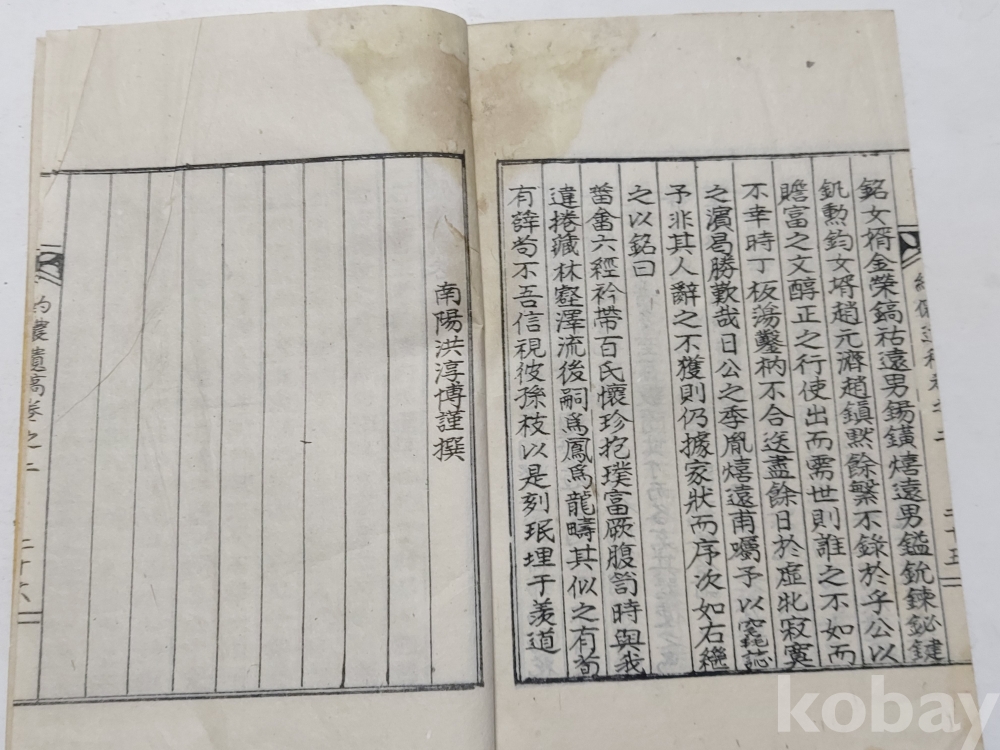 銘女壻金榮鎬祜遠男錫鐄熺遠男鎰銃鍊鉍鍵
釩勲鈞女壻趙元濟趙鎭黙餘繁不錄於乎公以
贍富之文醇正之行使出而需世則誰之不如而
不幸時丁板蕩鑿枘不合送盡餘日於虛牝寂寞
之濱曷勝歎哉日公之季胤熺遠甫囑予以窀誌
予非其人辭之不獲則仍據家狀而序次如右繼
之以銘曰
菑畬六經衿帶百氏懷珍抱璞富厥腹笥時與我
違捲藏林壑澤流後嗣爲鳳爲龍疇其似之有苟
有辥苟不吾信視彼孫枝以是刻珉埋于羡道
二十五
南陽洪淳博謹撰
農遺高卷之二
二十六
kobay